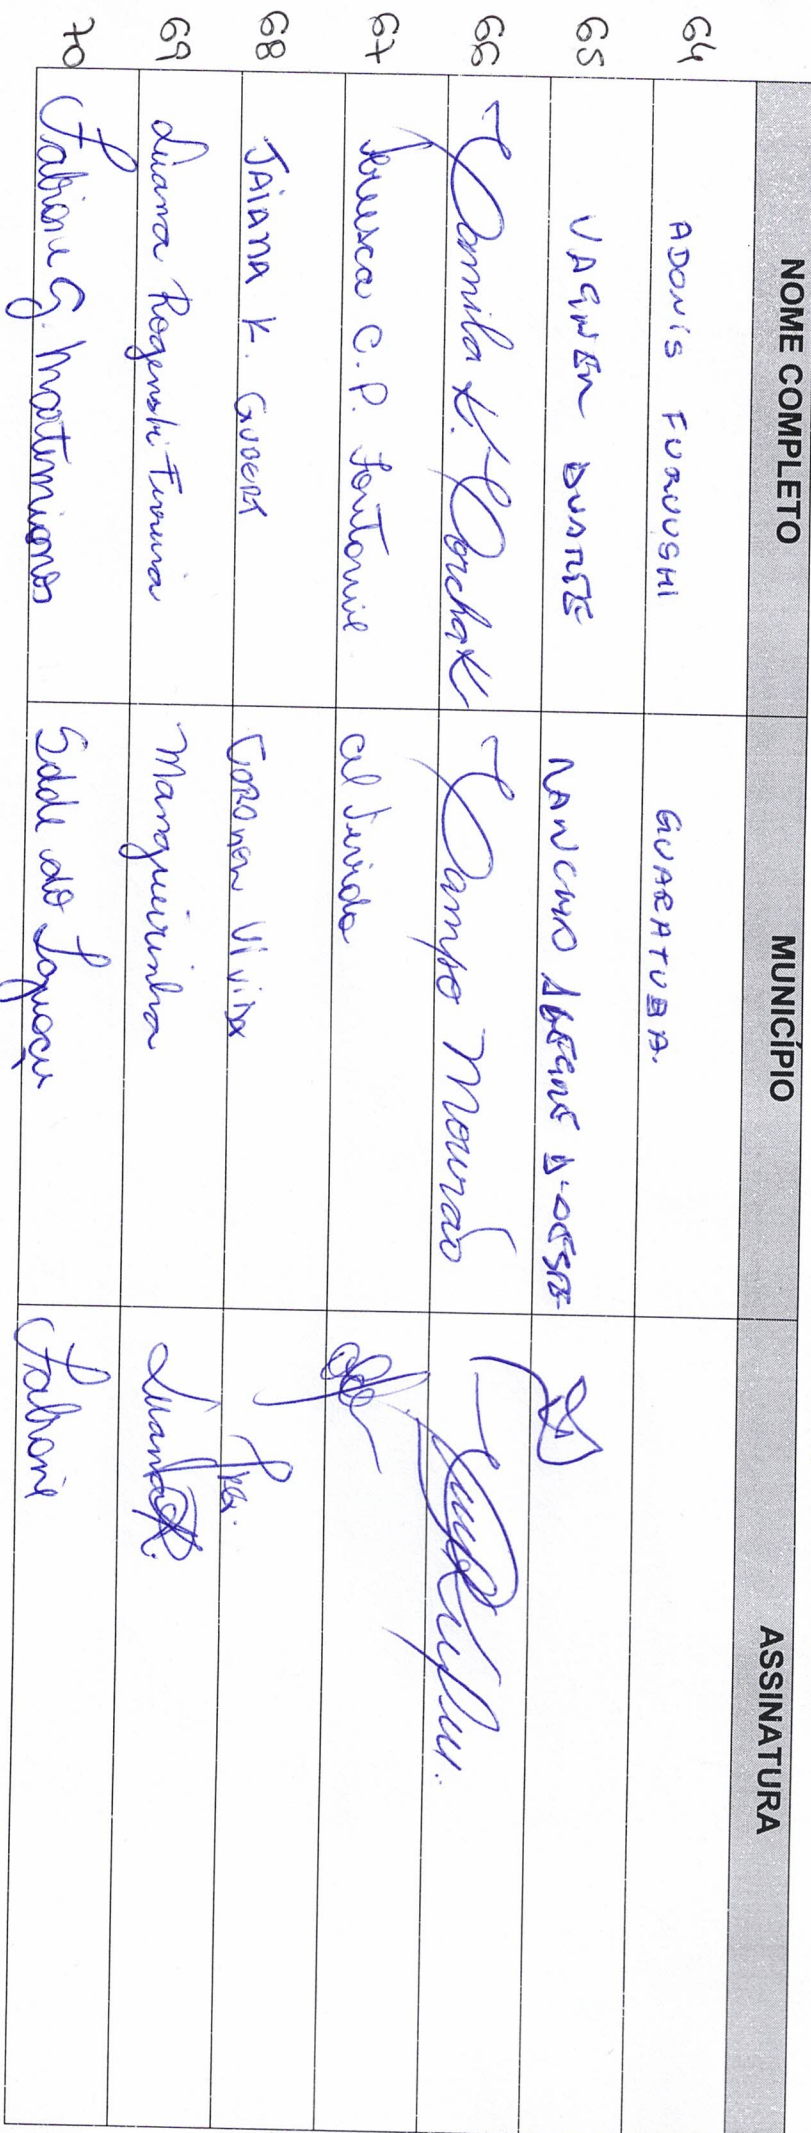 NOME COMPLETO MUNICÍPIO ASSINATURA
64 ADONIS FURUUSHI GUARATUBA.
65 VAGNER DUARTE RANCHO ALEGRE D'OESTE
66 Camila K. Corchak Campo Mourão
67 C. P. Fontanive Cel Vivida
68 JAIANA K. GUBERT CORONEL VIVIDA
69 Luana Rogenski Ferreira Mangueirinha Luana R.
70 Fabiane G. Martimianos Sdde do Iguaçu Fabiane